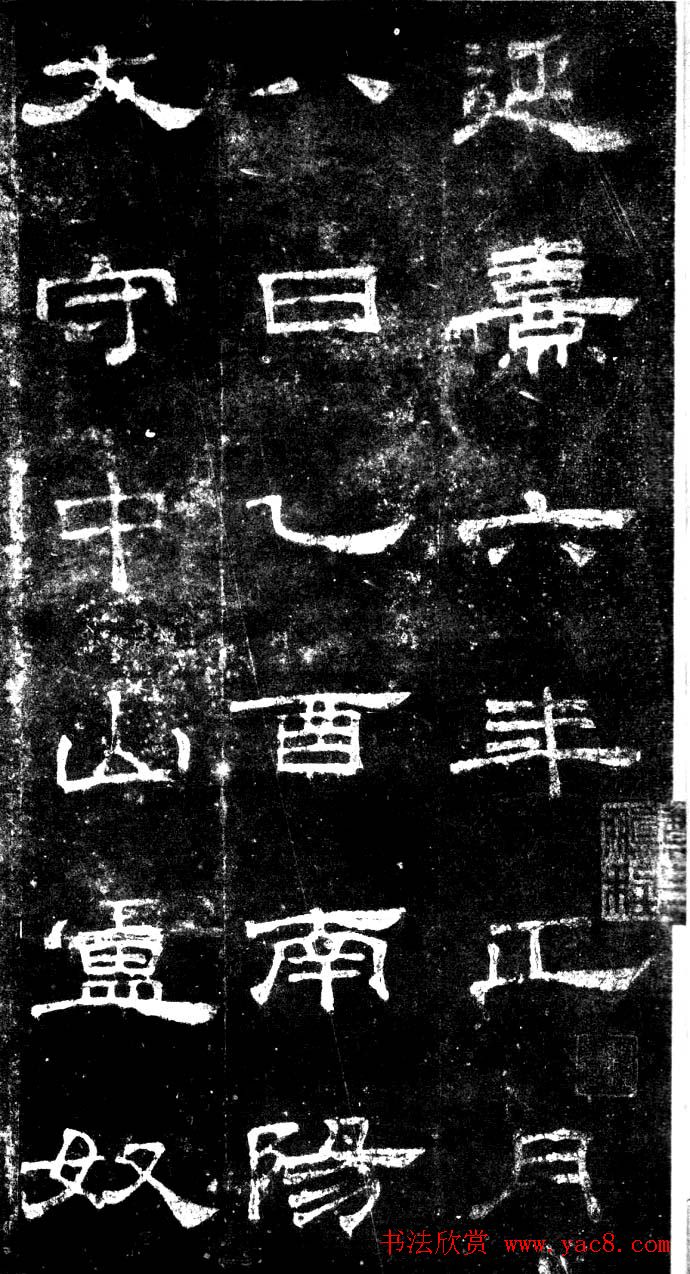 延熹六年正月
八日乙酉南陽
大守中山盧奴
书法欣赏 www.yac8.com